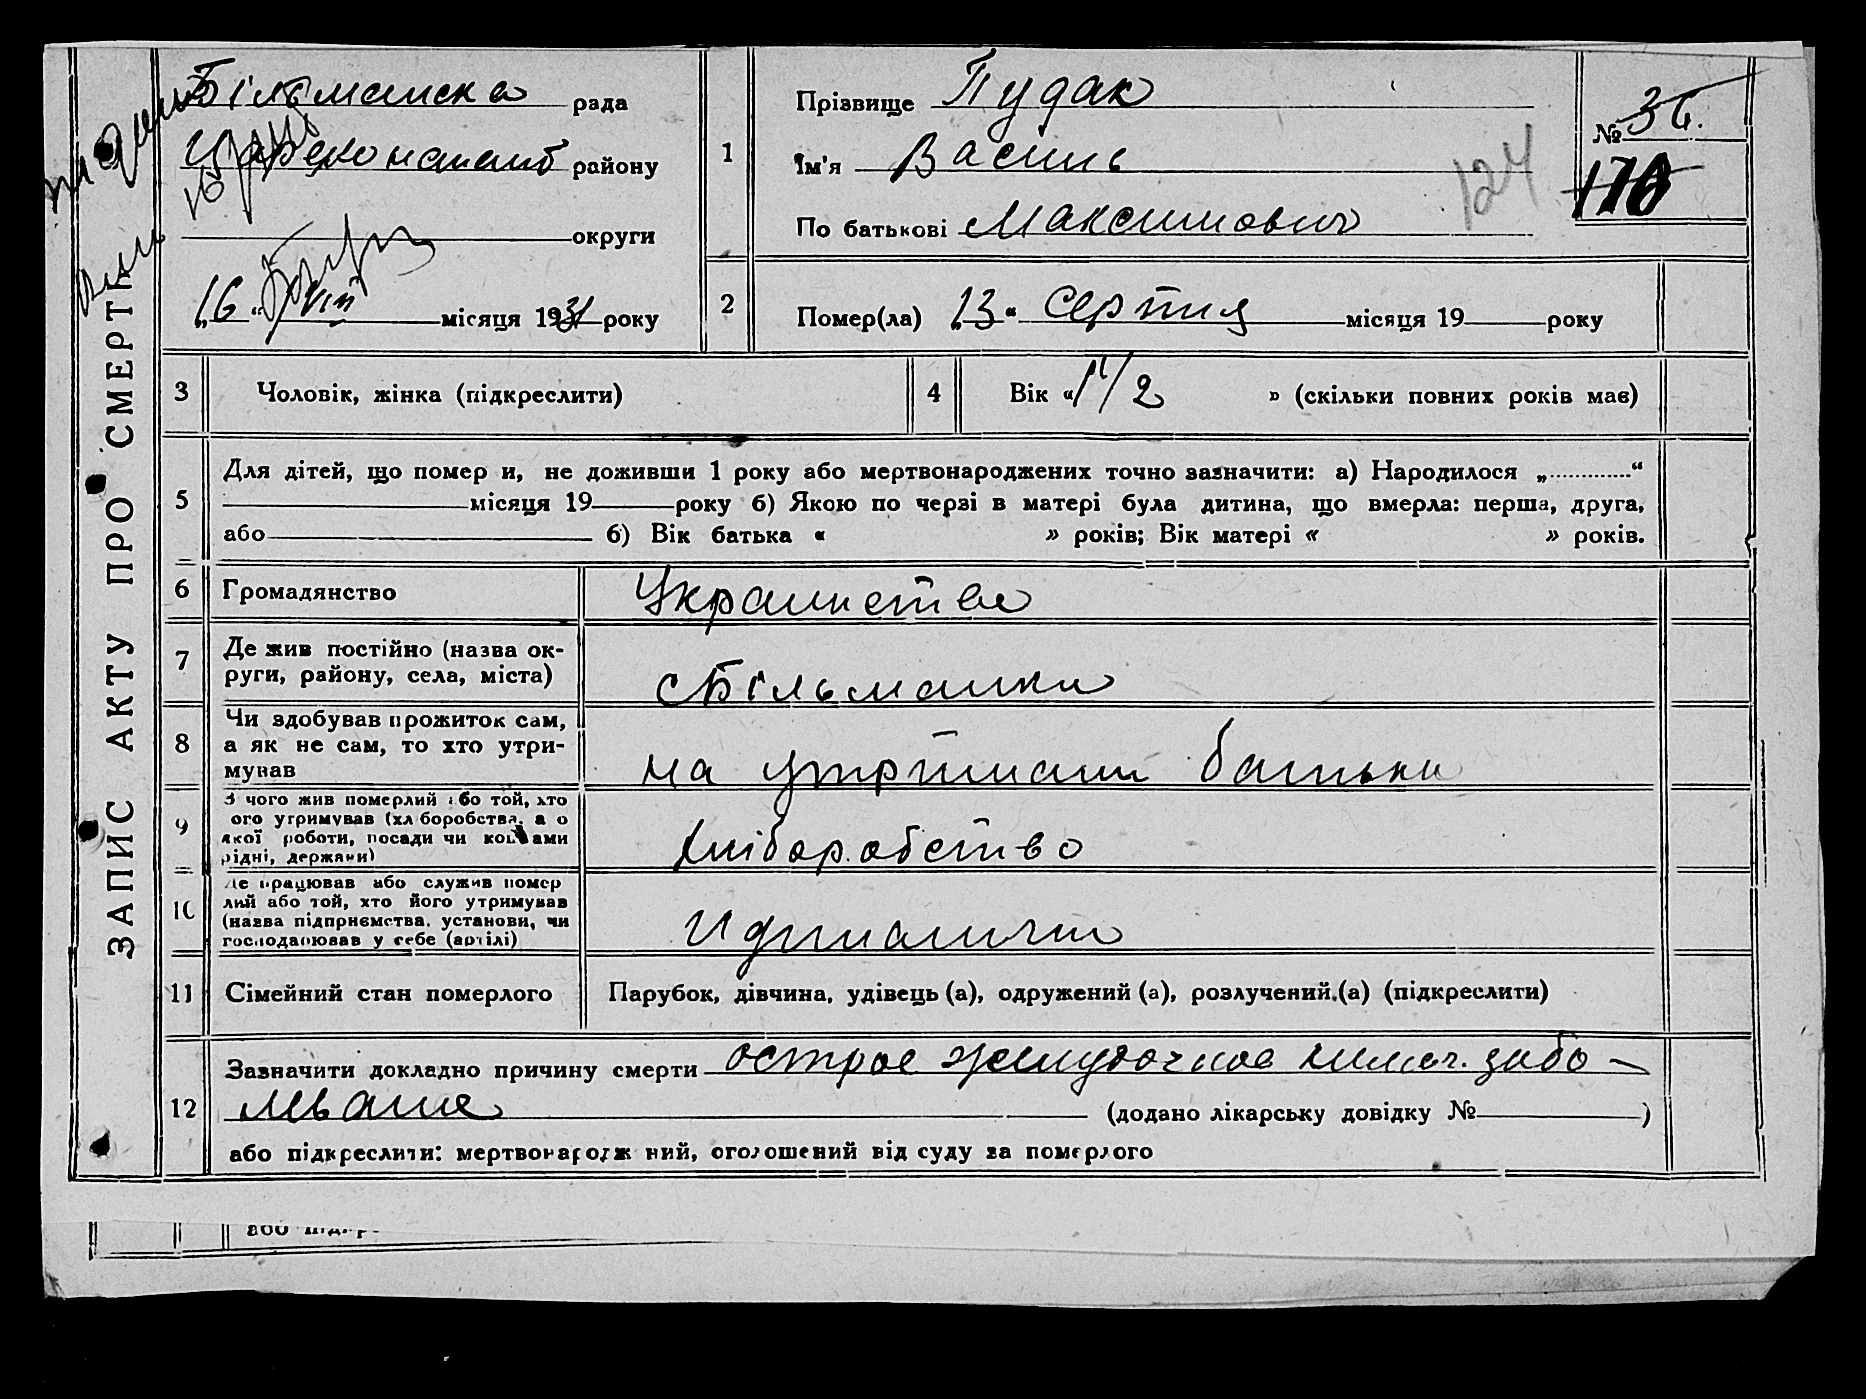 ЗАПИС АКТУ ПРО СМЕРТЬ
Більманска рада
району
округи
„16“ VIII місяця 1931 року
1
Прізвище Пудак
Ім'я Василь
По батькові Максимович
124
№ 36.
170
2
Помер(ла) „13“ серпня місяця 19 року
3 Чоловік, жінка (підкреслити)
4 Вік « 1 1/2 » (скільки повних років має)
5
Для дітей, що помер и, не доживши 1 року або мертвонароджених точно зазначити: а) Народилося „ “
місяця 19 року б) Якою по черзі в матері була дитина, що вмерла: перша, друга,
або б) Вік батька « » років; Вік матері « » років.
6 Громадянство
7 Де жив постійно (назва ок-
руги, району, села, міста)
с Більманка
8 Чи здобував прожиток сам,
а як не сам, то хто утри-
мував
на утриманні батька
9 З чого жив померлий або той, хто
ого утримував (хл боробства, а о
якої роботи, посади чи коштами
рідні, держави)
хліборобство
10 Де працював або служив помер
лий або той, хто його утримував
(назва підприємства, установи, чи
господарював у себе (артілі)
11 Сімейний стан померлого Парубок, дівчина, удівець (а), одружений (а), розлучений (а) (підкреслити)
12 Зазначити докладно причину смерти острое желудочное кишеч. забо-
левание (додано лікарську довідку № )
або підкреслити: мертвонародж ний, оголошений від суду за померлого